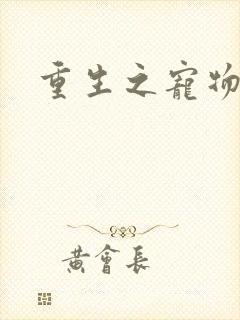 重生之寵物
黃會長